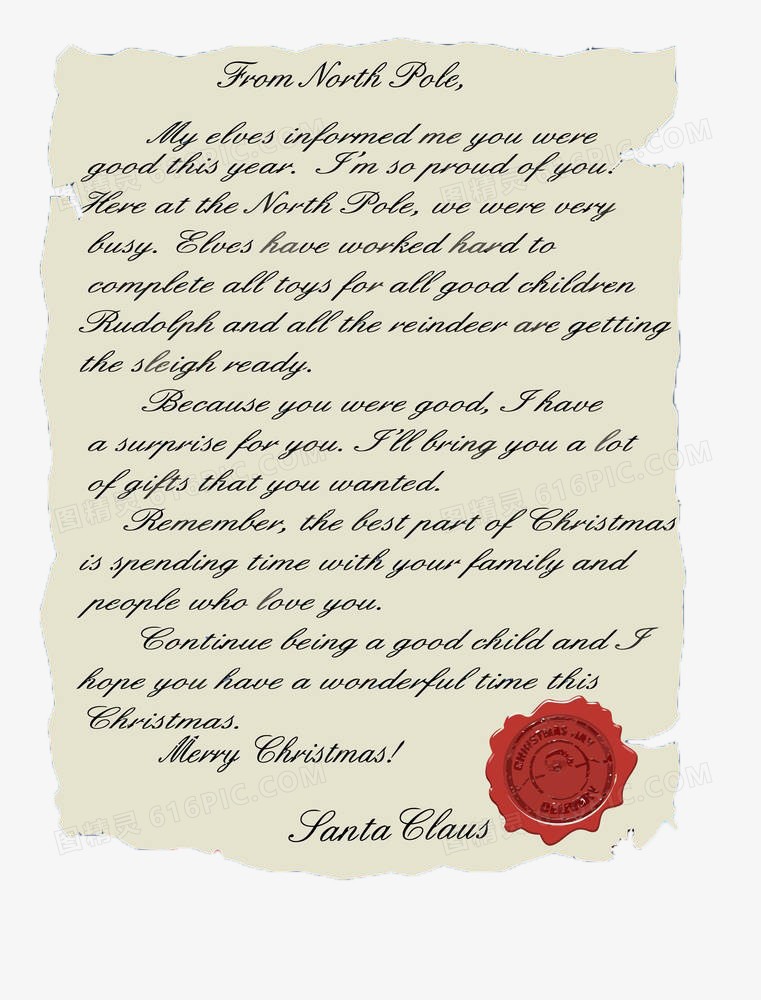 From North Pole,
My elves informed me you were
good this year. I'm so proud of you!
Here at the North Pole, we were very
busy. Elves have worked hard to
complete all toys for all good children
Rudolph and all the reindeer are getting
the sleigh ready.
Because you were good, I have
a surprise for you. I'll bring you a lot
of gifts that you wanted.
Remember, the best part of Christmas
is spending time with your family and
people who love you.
Continue being a good child and I
hope you have a wonderful time this
Christmas.
Merry Christmas!
Santa Claus
CHRISTMAS
DELIVERY
图精灵 616PIC.COM